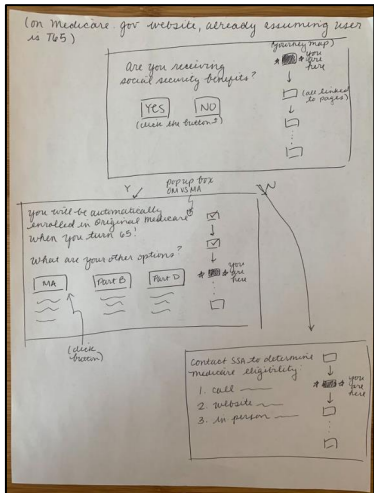 (on Medicare.gov website, already assuming user
is T65)
(journey map)
Are you receiving
social security benefits?
you
are
here
YES
NO
(click the buttons)
(all linked
to pages)
Y
popup box
OM vs MA
N
You will be automatically
enrolled in Original Medicare
when you turn 65!
What are your other options?
MA
Part B
Part D
you
are
here
(click
button)
Contact SSA to determine
medicare eligibility:
1. call
2. website
3. in person
you
are
here